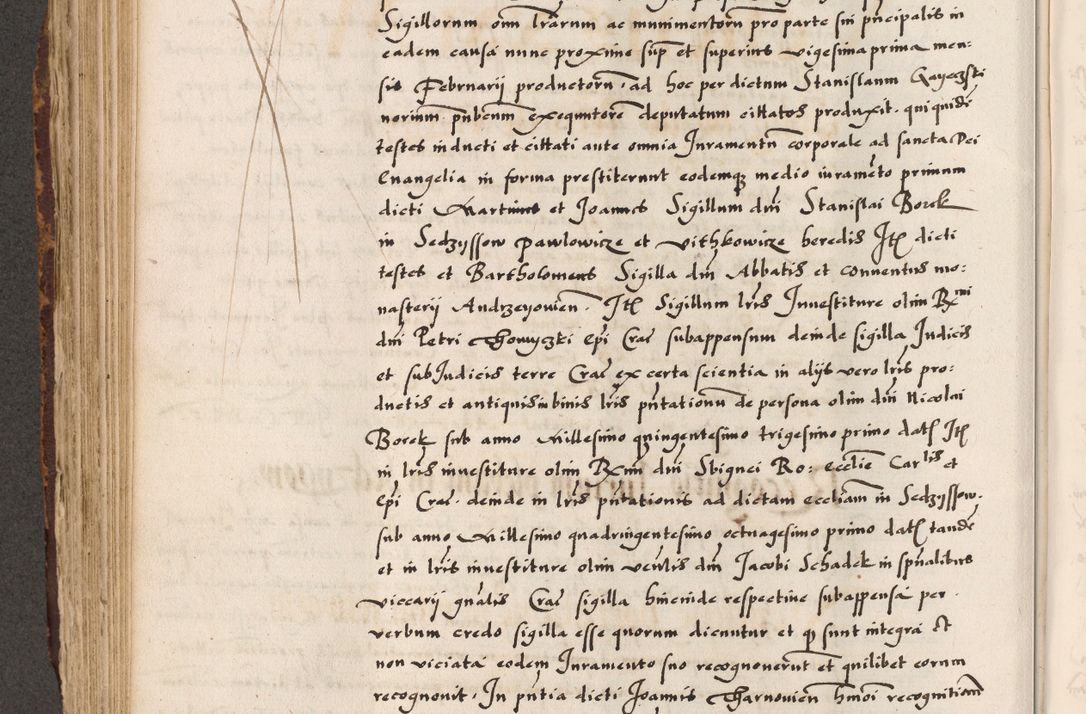 Sigillorum om̄ lr̄arum ac munimentorū pro parte sui pn̄cipalis in
eadem causa nunc proxime sup̄ et superius vigesima prima men:
sis Februarij productorū, ad hoc per dictum Stanislaum Gayeczki
norium̄ pub̄cum exequutorē deputatum cittatos produxit. qui quidē
testes inducti et cittati ante omnia Iuramentū corporale ad sancta Dei
Euangelia in forma prestiterunt eodemqʒ medio iuramēto primum
dicti Martinus et Joannes Sigillum dn̄i Stanislai Borek
in Sedzyssow Pawlowicze et Vithkowicze heredis Itē dicti
testes et Bartholomeus Sigilla dn̄i Abbatis et conuentus mo:
nasterij Andrzeyouien̄. Itē Sigillum lr̄is Inuestiture olim Rx̄mi
dn̄i Petri Thomyczki Ep̄i Crac̄ subappensum deinde sigilla Iudicis
et subIudicis terre Crac̄ ex certa scientia in alijs vero lr̄is pro:
ductis et antiquis in binis lr̄is pn̄tationū de persona olim dn̄i Nicolai
Borek sub anno Millesimo quingentesimo trigesimo primo dat̄ Itē
in lr̄is inuestiture olim Rx̄mi dn̄i Sbignei Ro: eccl̄ie Carlis et
Ep̄i Crac̄. deinde in lr̄is pn̄tationis ad dictam eccl̄iam in Sedzyssow.
sub anno Millesimo quadringentesimo octuagesimo primo dat̄ tandē
et in lr̄is inuestiture olim ven̄lis dn̄i Jacobi Schadek in sp̄ualibus
viccarij gn̄alis Crac̄ sigilla huicinde respectiue subappensa per
verbum credo sigilla esse quorum dicuntur et qʒ sunt integra et
non viciata eodem Iuramento suo recognouerūt et quilibet eorum
recognouit. In pn̄tia dicti Joannis Tharnouien̄ hm̄oi recognitionē